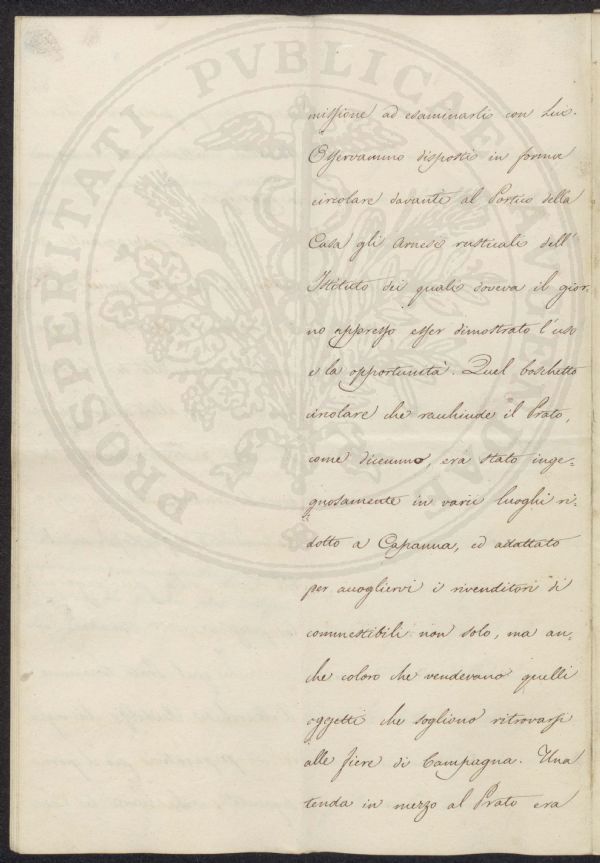 PROSPERITATI PVBLICAE AVGENDAE
missione ad esaminarli con Lui.
Osservammo disposti in forma
circolare davanti al Portico della
Casa gli Arnesi rusticali dell'
Istituto dei quali doveva il gior-
no appresso esser dimostrato l'uso
e la opportunità. Quel boschetto
circolare che racchiude il Prato,
come dicemmo, era stato inge-
gnosamente in varii luoghi ri-
dotto a Capanna, ed adattato
per accogliervi i rivenditori di
commestibili non solo, ma an-
che coloro che vendevano quelli
oggetti che sogliono ritrovarsi
alle fiere di Campagna. Una
tenda in mezzo al Prato era